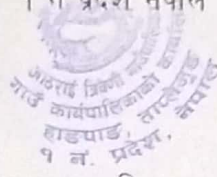 १ नं प्रदेश नेपाल
आठराई त्रिवेणी गाउँपालिका
गाउँ कार्यपालिकाको कार्यालय
हाङपाङ, ताप्लेजुङ
१ नं. प्रदेश, नेपाल